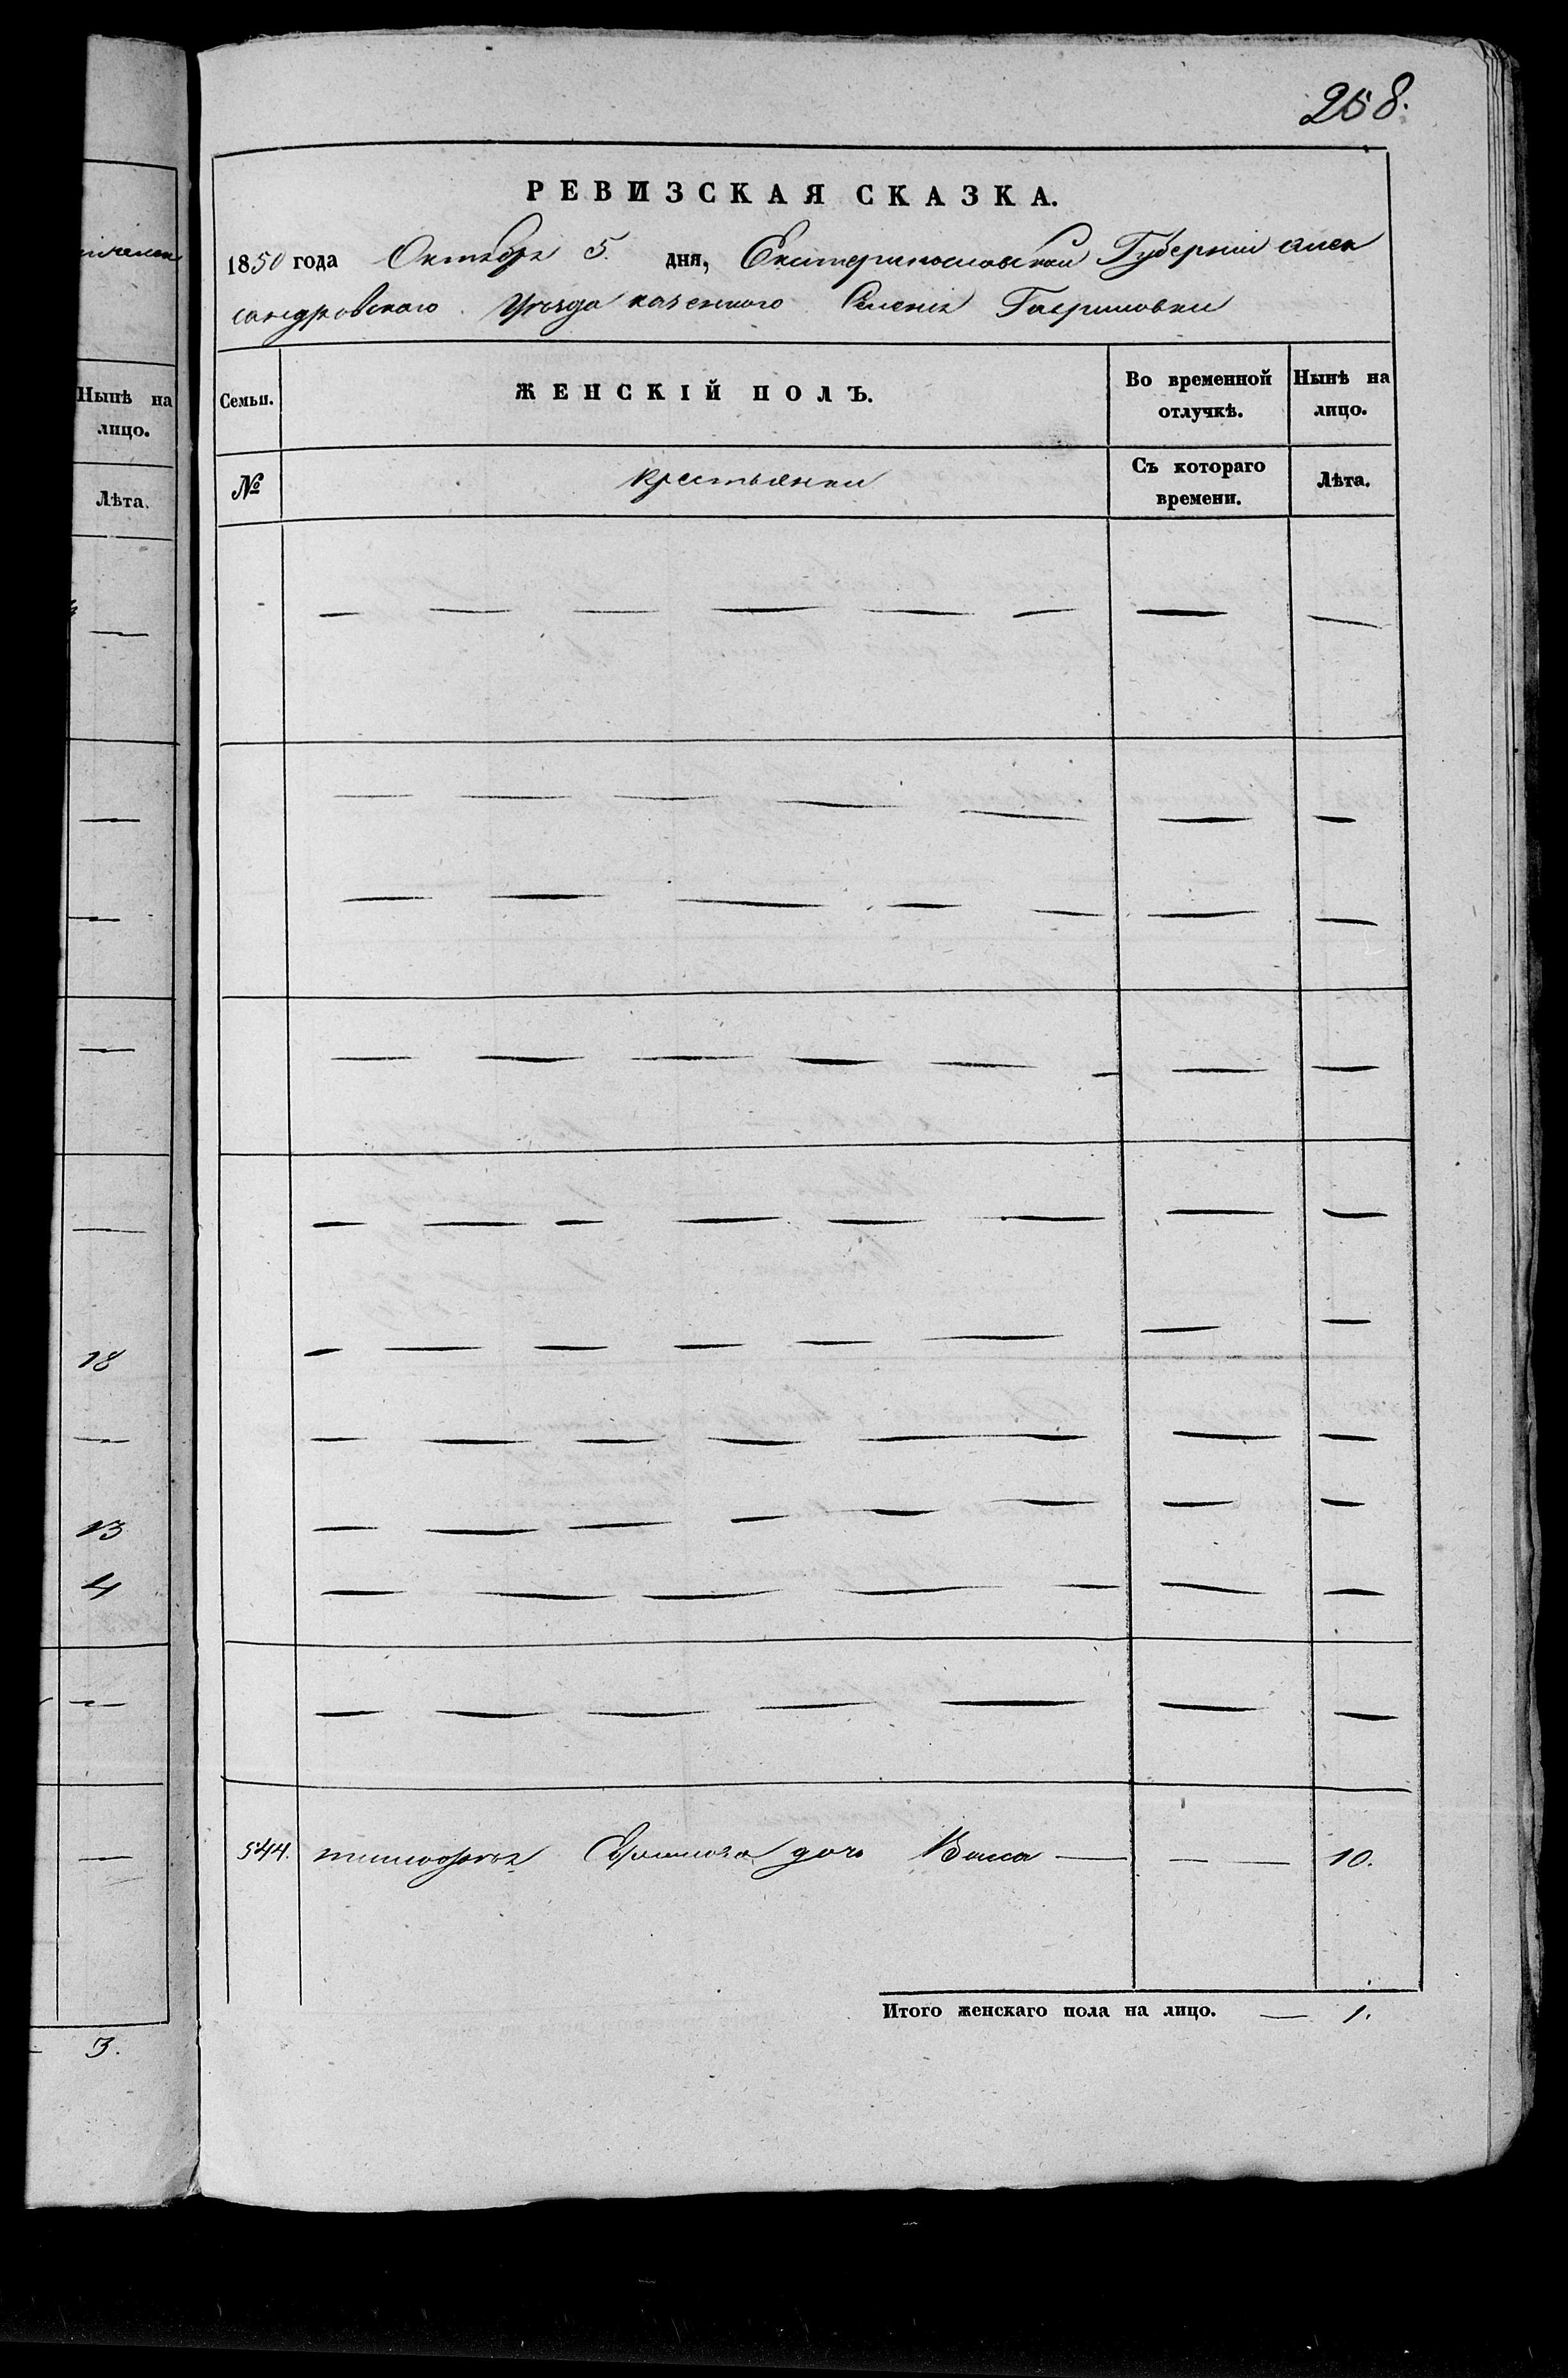 258.
РЕВИЗСКАЯ СКАЗКА.
1850 года Октября 5. дня, Екатеринославской Губернии Алек
сандровскаго Уезда казенного Селения Гавриловки
Семьи.
ЖЕНСКІЙ ПОЛЪ.
Во временной отлучкѣ.
Нынѣ на лицо.
№
крестьянки
Съ котораго времени.
Лѣта.
544. дочь Васса — — — 10.
Итого женскаго пола на лицо. — 1.
Нынѣ на
лицо.
Лѣта.
—
—
—
—
—
18
—
13
4
—
—
3.